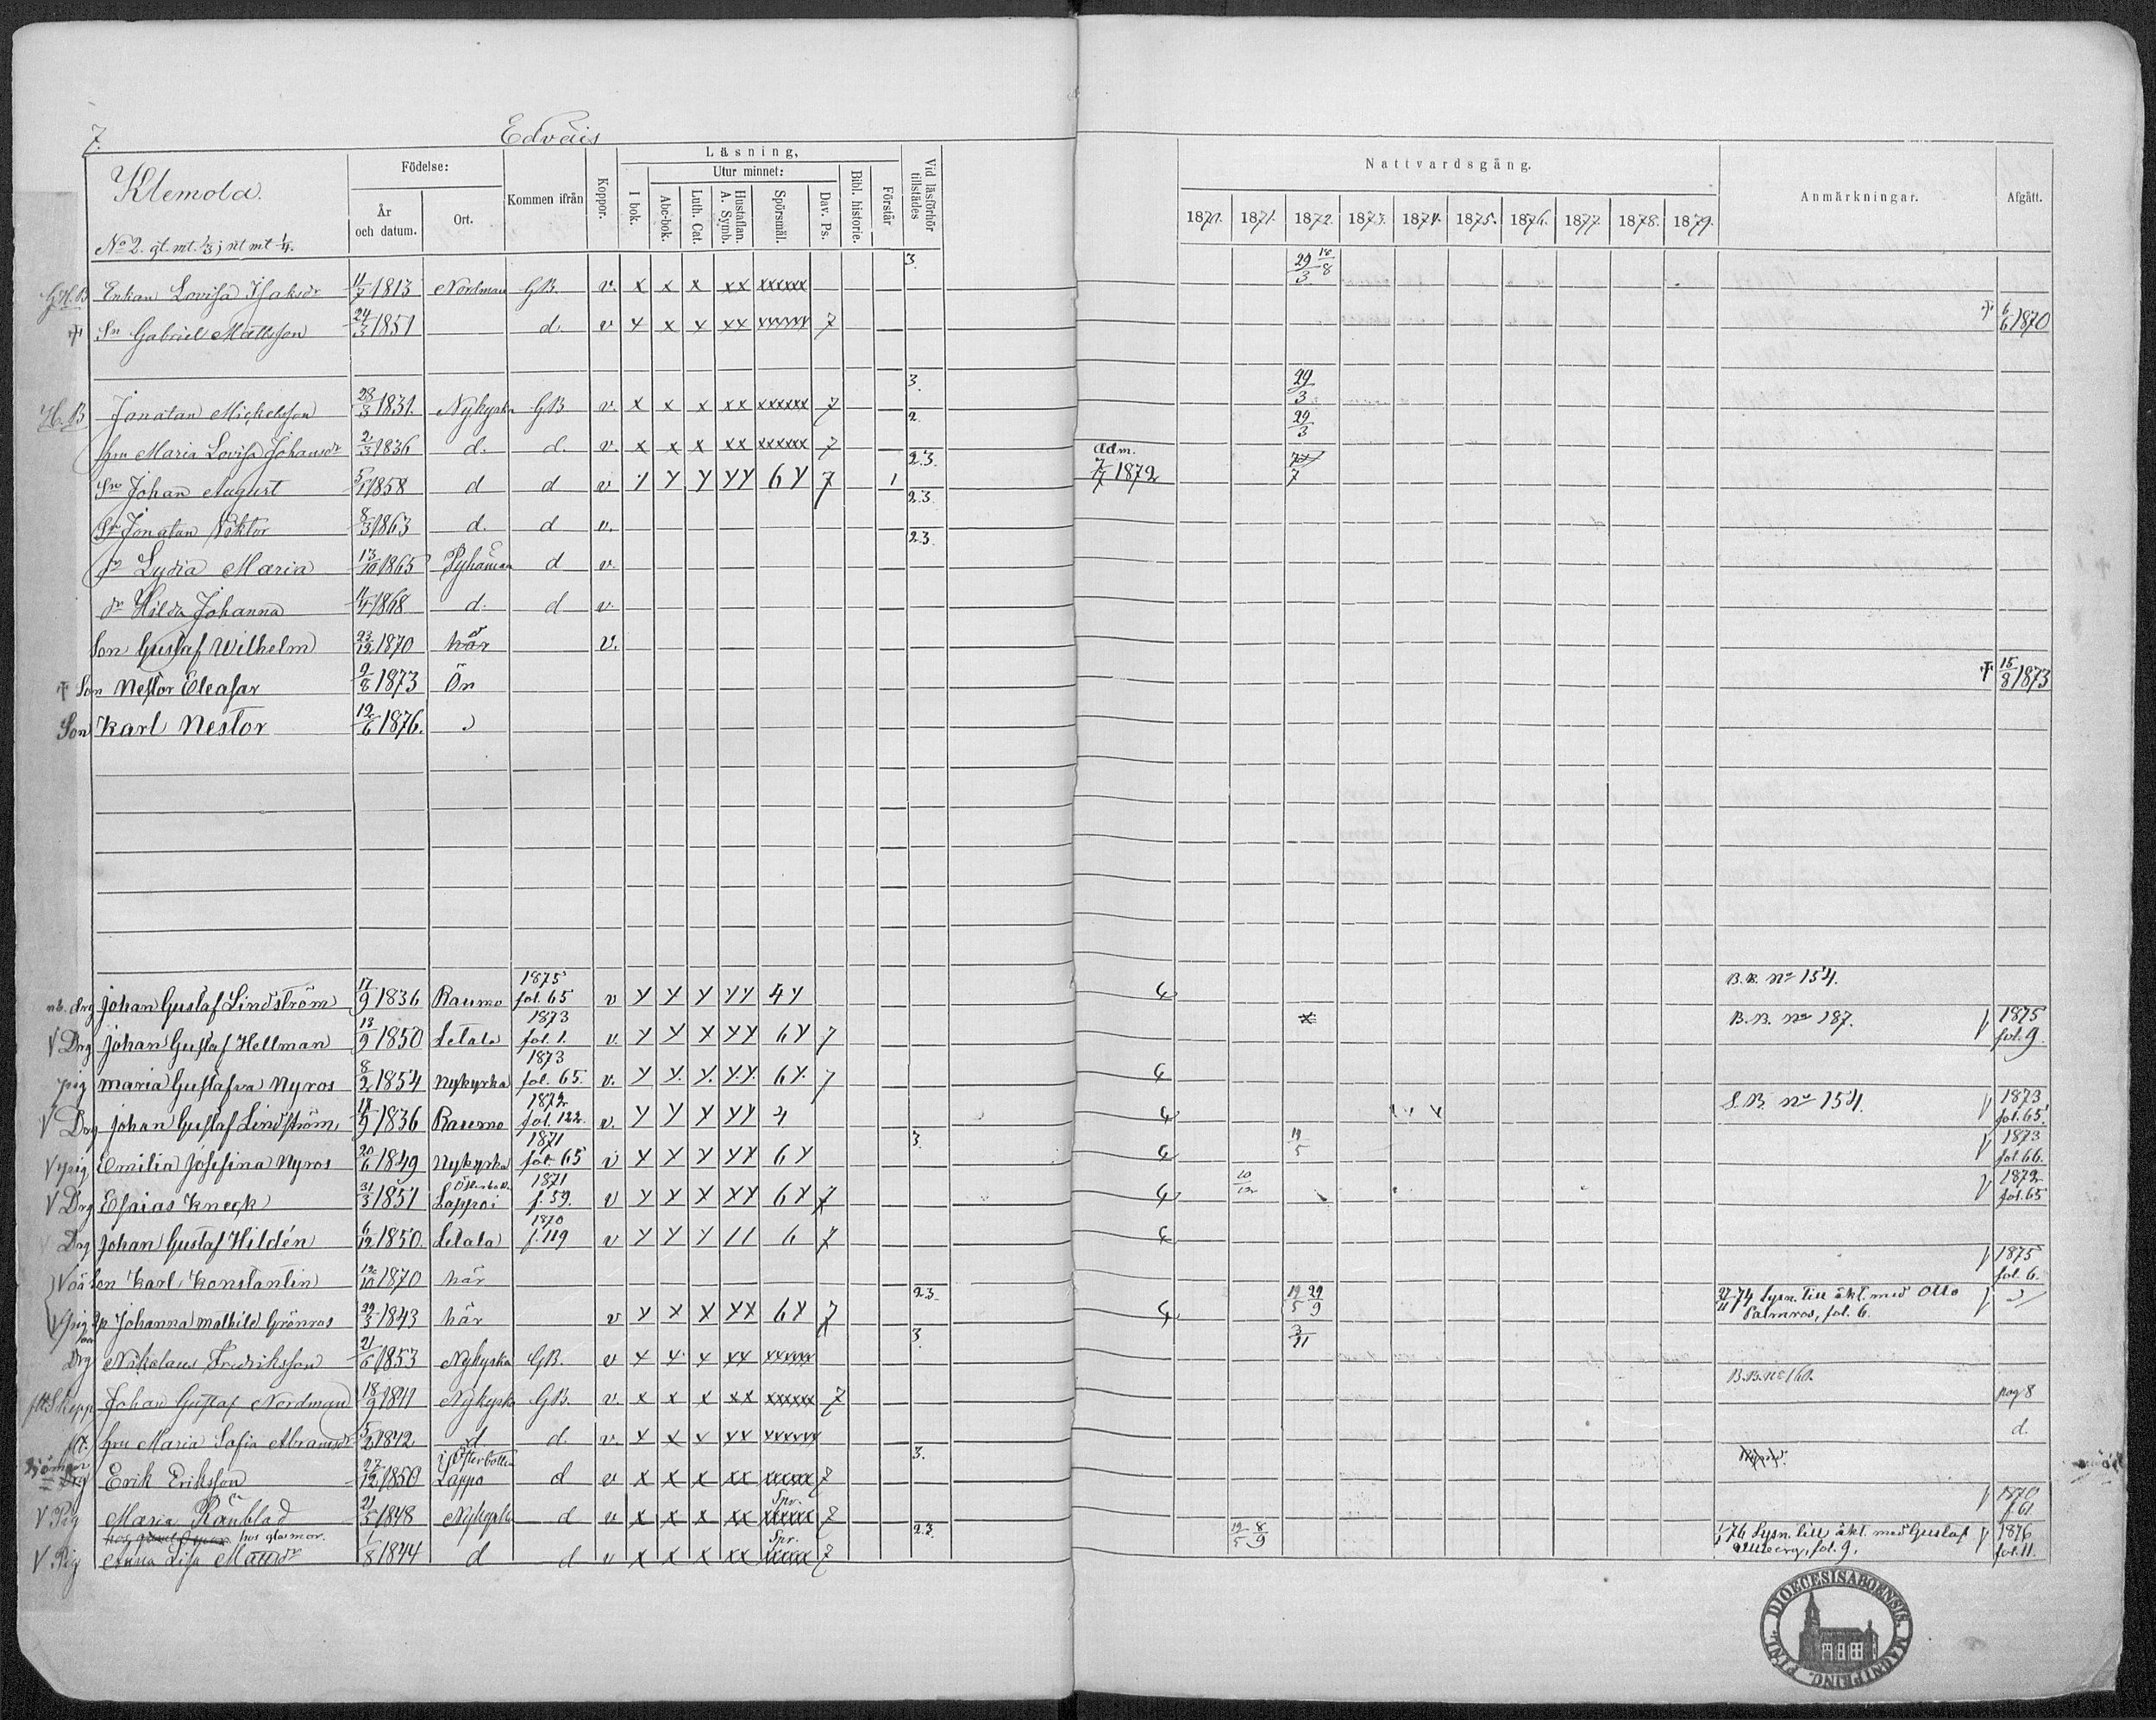 7.
Edväis
Klemola.
No 2. gl. mt. 1/3; nt mt 1/4.
Födelse:
År och datum.
Ort.
Kommen ifrån
Koppor.
Läsning,
I bok.
Utur minnet:
Abc-bok.
Luth. Cat.
Hustaflan. A. Symb.
Spörsmål.
Dav. Ps.
Bibl. historie.
Förstår
Vid läsförhör tillstädes
Nattvardsgång.
1870. 1871. 1872. 1873. 1874. 1875. 1876. 1877. 1878. 1879.
Anmärkningar.
Afgått.
G.H.B Enkan Lovisa Isaksdr 11/7 1813 Nordman GB. v. x x x xx xxxxxx 3. 29/3 18/8
† Sn Gabriel Mattsson 24/3 1851 d. v x x x xx xxxxxx 7 † 6/6 1870
H.B Jonatan Mickelsson 28/3 1831. Nykyrka GB v. x x x xx xxxxxx 7 3. 29/3
hru Maria Lovisa Johansdr 2/3 1836 d. d. v. x x x xx xxxxxx 7 2. 29/3
Sn Johan August 5/1 1858 d d v y y y yy 6y 7 1 2.3. Adm. 7/7 1872
Sn Jonatan Viktor 8/3 1863 d. d v. 2.3.
dr Lydia Maria 13/10 1865 Pyhämaa d v. 2.3.
dr Hilda Johanna 11/4 1868 d. d v.
Son Gustaf Wilhelm 23/12 1870 här v.
† Son Nestor Eleasar 9/8 1873 Ön † 15/8 1873
Son Karl Nestor 12/6 1876. "
nb. drg Johan Gustaf Lindström 17/9 1836 Raumo 1875 fol. 65 v y y y yy 4y B.B. No 154.
V Drg Johan Gustaf Hellman 13/9 1850 Letala 1873 fol. 1. v. y y x yy 6y 7 x B.B. No 187. V 1875 fol. 9.
pig Maria Gustafva Nyros 8/2 1854 Nykyrka 1873 fol. 65. v. y y. y. y.y. 6y. 7
V Drg Johan Gustaf Lindström 17/9 1836 Raumo 1872 fol. 122. v. y y y yy 4 S.B. No 154. V 1873 fol. 65.
V pig Emilia Josefina Nyros 20/6 1849 Nykyrka 1871 fol. 65 v y y y yy 6y 3. 19/5 V 1873 fol. 66.
V Drg Esaias Kneck 31/3 1851 Lappoi 1871 f. 59. v y y x yy 6y 7 10/12 V 1872 fol. 65
Drg Johan Gustaf Hildén 6/12 1850. Letala 1870 f. 119 v y y y 11 6 7
V oä Son Karl Konstantin 12/10 1870 här V 1875 fol. 6.
V pig Johanna Mathild Grönros 29/3 1843 här v y x x xx 6y 7 2.3. 19/5 29/9 22/11 74 Lysn. till äkt. med Otto Palmros, fol. 6. V "
Drg Nikolaus Fredriksson 21/6 1853 Nykyrka GB. v y y y yy yyyyy 3. 3/11
Skepp Johan Gustaf Nordman 18/9 1841 Nykyrka GB. v. x x x xx xxxxxx 7 B.B. No 160. pag 8
hru Maria Sofia Abramsdr 5/2 1842 d d. v. y x x yy yyyyyy d.
Sjöman Drg Erik Eriksson 27/12 1850 i Österbotten Lappo d v x x x xx xxxxx 7 3.
V Pig Maria Ränblad 21/5 1848 Nykyrka d v x x x xx Spr. xxxxx 7 V 1870 f. 61
hos glasmor.
V Pig Anna Lisa Mattsdr 1/8 1844 d d v x x x xx Spr. xxxxx 7 2.3. 12/5 8/9 76 Lysn. till äkt. med Gustaf fol. 9. V 1876 fol. 11.
DIOECESIS ABOENSIS. MAGNI PRINC. FINL.